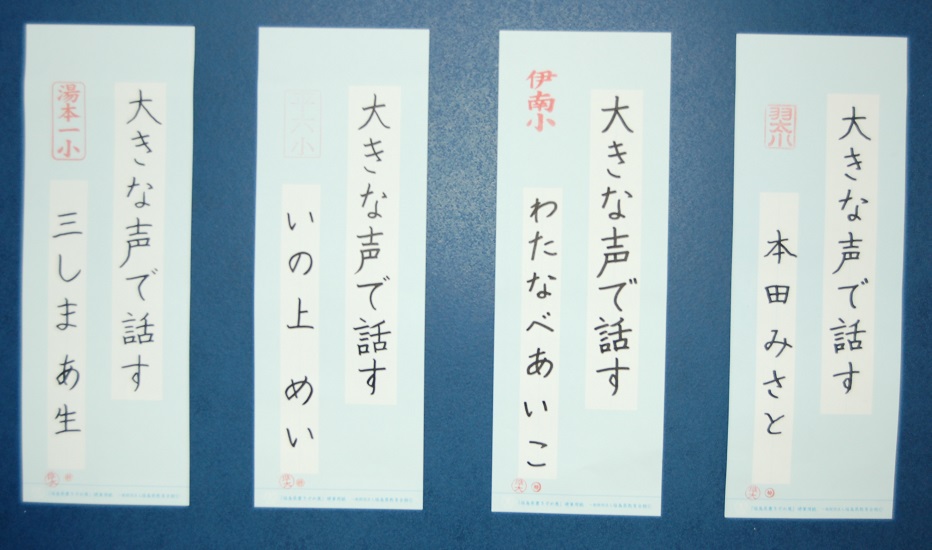 大きな声で話す
伊南小
わたなべあいこ
大きな声で話す
本田みさと
大きな声で話す
いの上 めい
大きな声で話す
湯本一小
三しま あ生